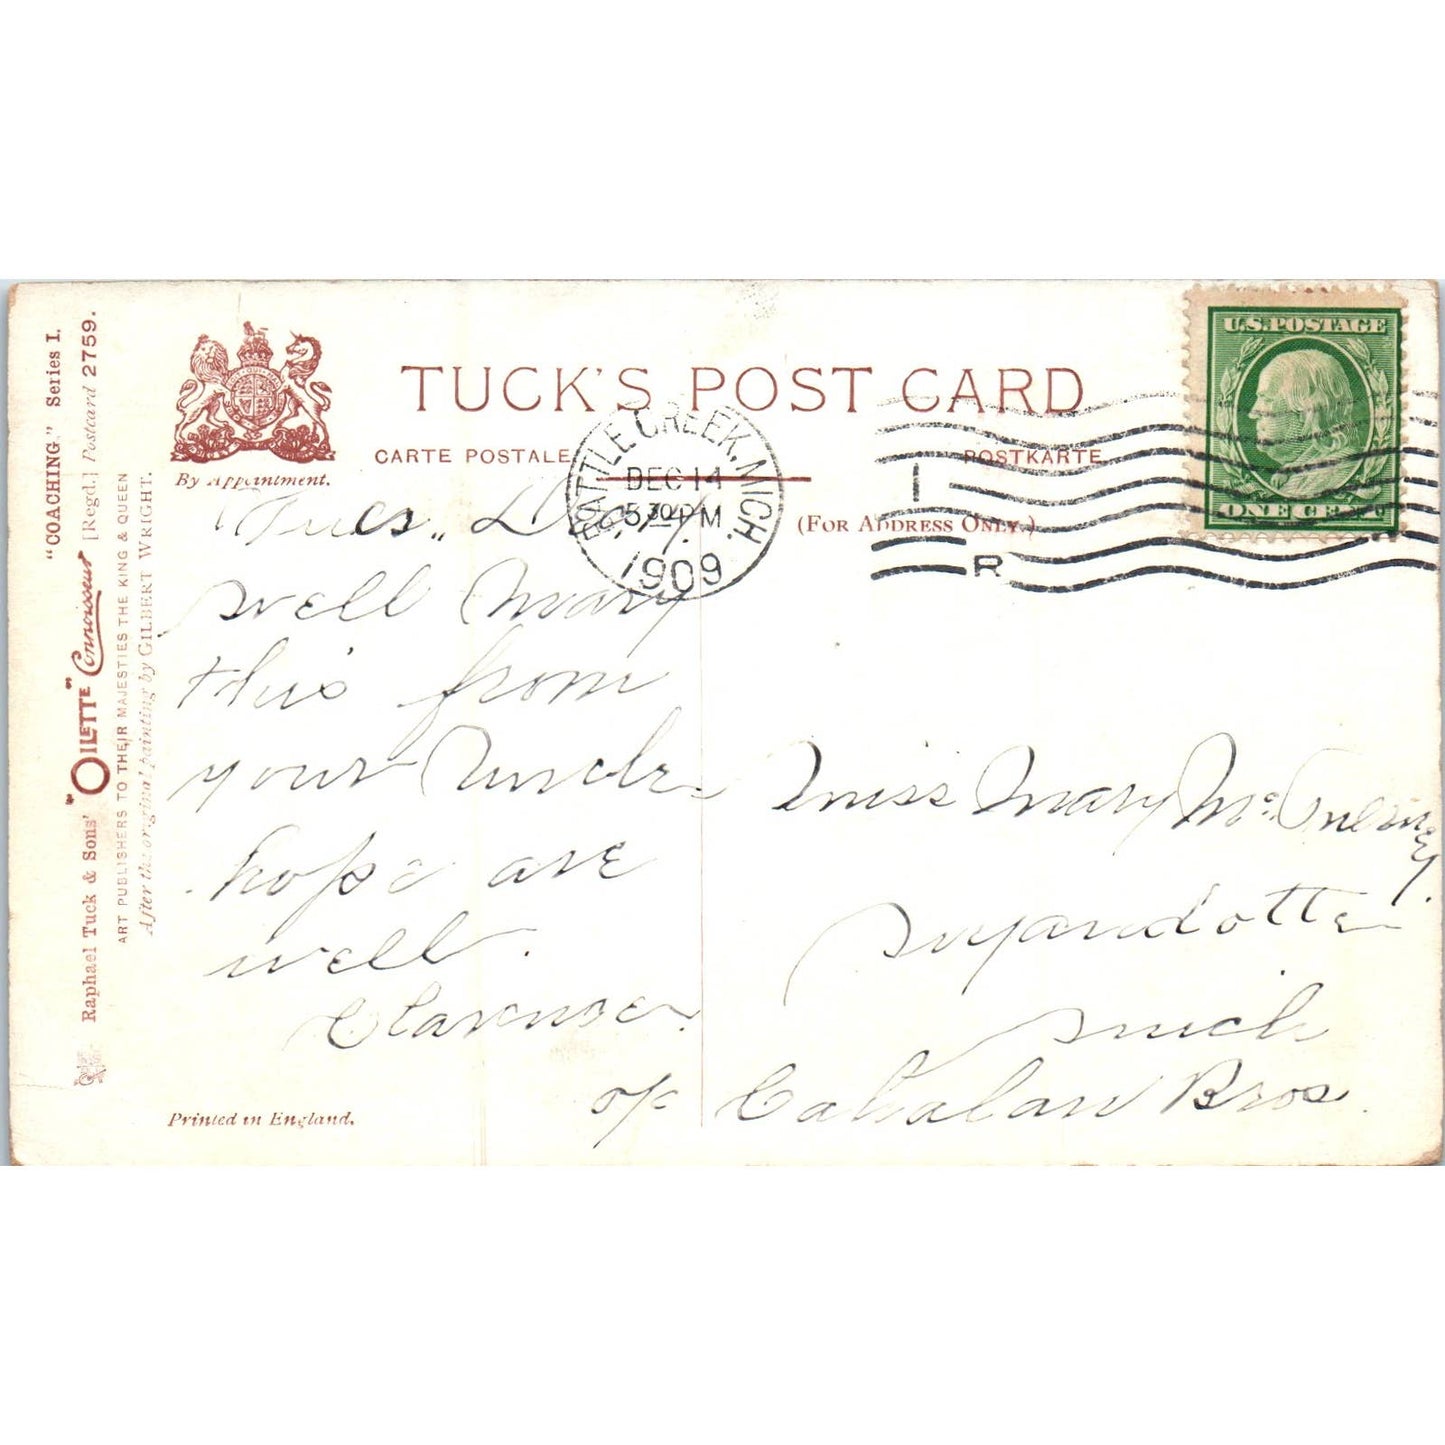 "COACHING." Series I.
Raphael Tuck & Sons' "OILETTE" Connoisseur [Regd.] Postcard 2759.
ART PUBLISHERS TO THEIR MAJESTIES THE KING & QUEEN
After the original painting by GILBERT WRIGHT.
By Appointment.
TUCK'S POST CARD
CARTE POSTALE
POSTKARTE
(FOR ADDRESS ONLY.)
BATTLE CREEK, MICH.
DEC 14
5 30 PM
1909
1
R
U.S. POSTAGE
ONE CENT
Tues. Day.
well Mary
this from
your Uncle
hope are
well.
Clarence.
Miss Mary Mc
Wyandotte
Mich
c/o Bros
Printed in England.